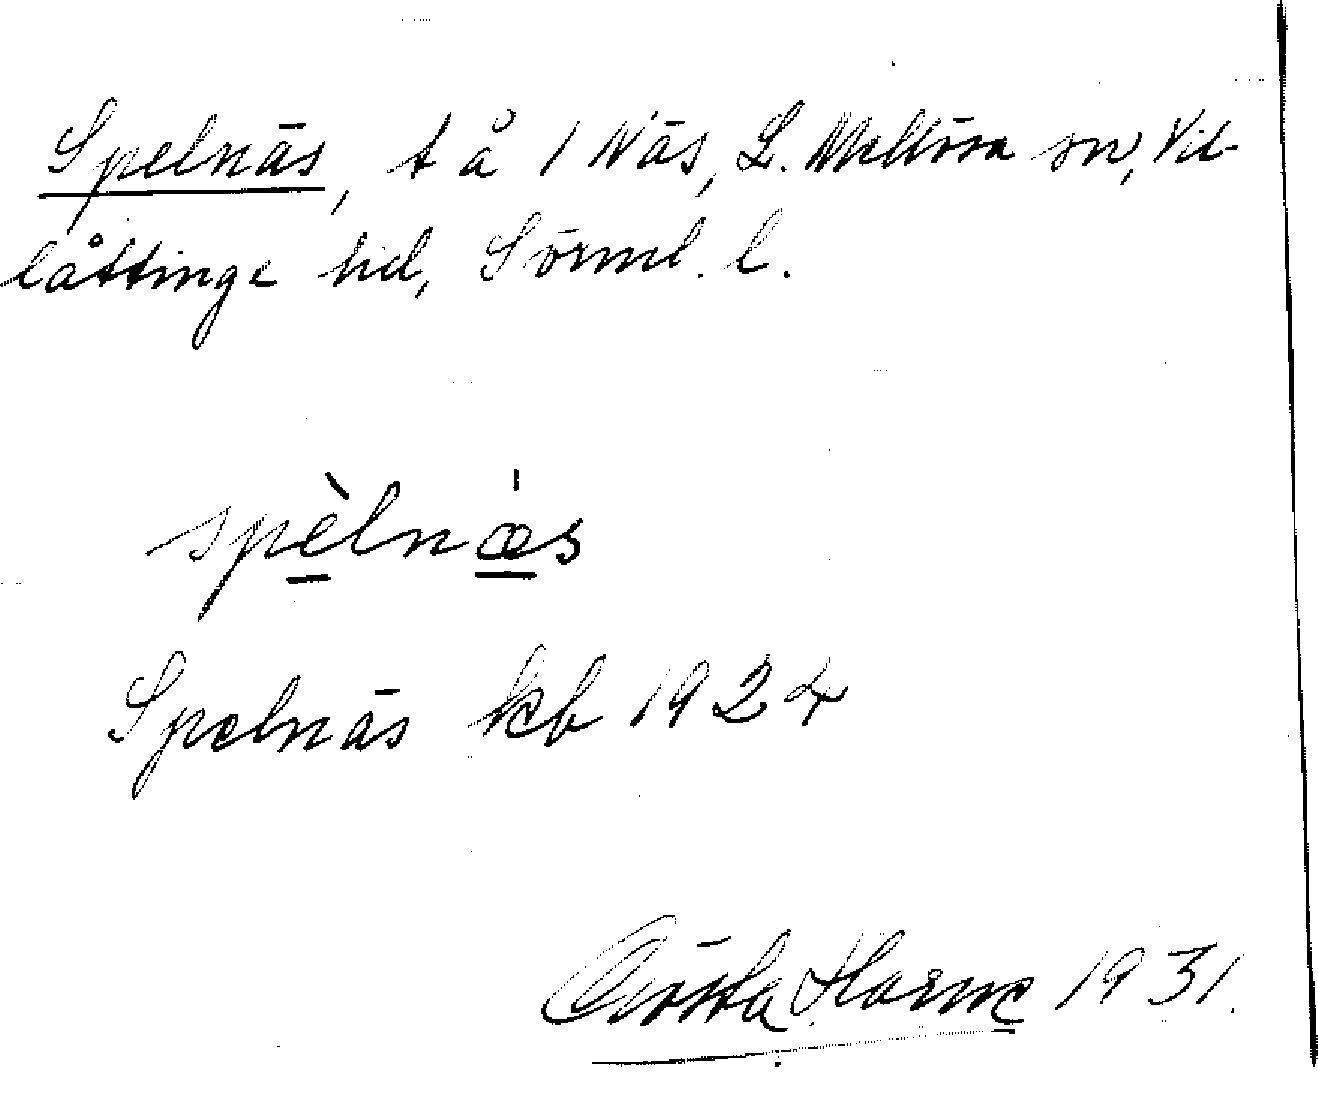 Spelnäs, t å 1 Näs, L. Mellösa sn, Vil-
låttinge hd, Sörml. l.
spèlnæ̍s
Spelnäs kb 1924
Gösta Horne 1931.